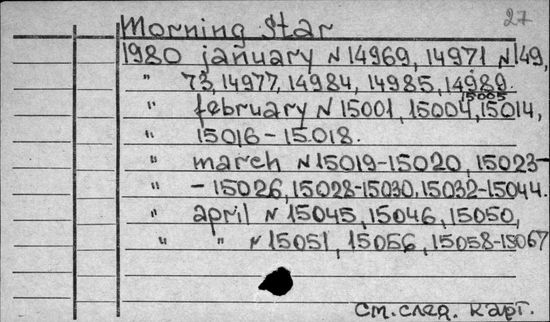 27
Morning Star
1980 january N 14969, 14971 N 149,
" 73, 14977, 14984, 14985, 14989.
15005
" february N 15001, 15004, 15014,
" 15016-15018.
" march N 15019-15020, 15023-
" -15026, 15028-15030, 15032-15044.
" april N 15045, 15046, 15050,
" " N 15051, 15056, 15058-15067
См. след. карт.